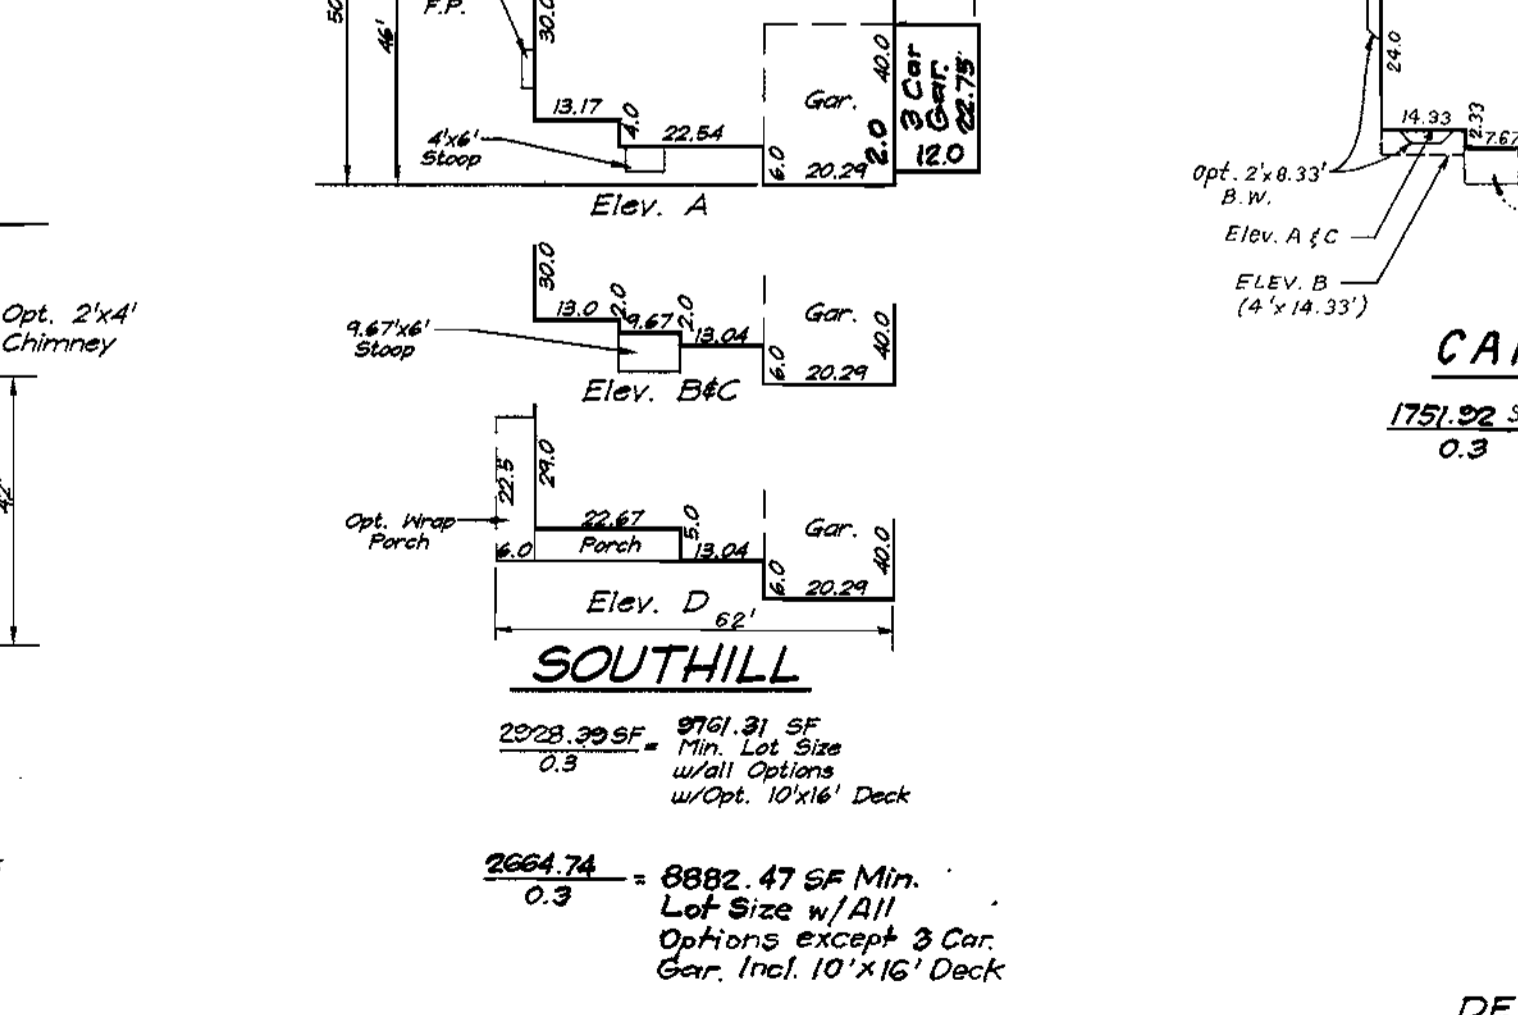 50
46'
F.P.
30.0
13.17
4.0
22.54
4'x6'
Stoop
Gar.
40.0
6.0
20.29
2.0
3 Car
Gar.
22.75'
12.0
Elev. A
30.0
13.0
2.0
9.67
2.0
13.04
9.67'x6'
Stoop
Gar.
40.0
6.0
20.29
Elev. B&C
22.5
29.0
Opt. Wrap
Porch
22.67
5.0
6.0
Porch
13.04
Gar.
40.0
6.0
20.29
Elev. D
62'
SOUTHILL
2928.39 SF
0.3
=
9761.31 SF
Min. Lot Size
w/all Options
w/Opt. 10'x16' Deck
2664.74
0.3
= 8882.47 SF Min.
Lot Size w/All
Options except 3 Car.
Gar. Incl. 10'x16' Deck
Opt. 2'x4'
Chimney
42'
24.0
14.33
2.33
7.67
Opt. 2'x8.33'
B.W.
Elev. A & C
ELEV. B
(4'x14.33')
CA
1751.92 S
0.3
DE